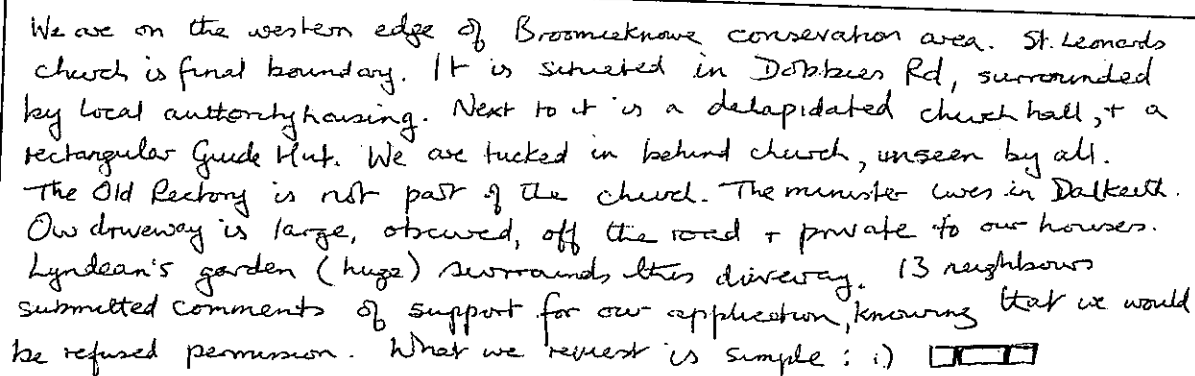 We are on the western edge of Broomieknowe conservation area. St. Leonards
church is final boundary. It is situated in Dobbies Rd, surrounded
by local authority housing. Next to it is a delapidated church hall, + a
rectangular Guide Hut. We are tucked in behind church, unseen by all.
The Old Rectory is not part of the church. The minister lives in Dalkeith.
Our driveway is large, obscured, off the road + private to our houses.
Lyndean's garden (huge) surrounds this driveway. 13 neighbours
submitted comments of support for our application, knowing that we would
be refused permission. What we request is simple : i)